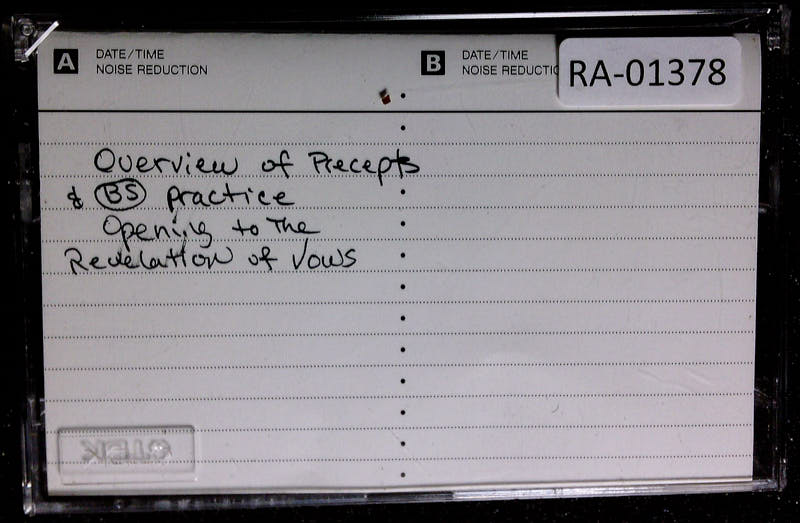 A DATE/TIME
NOISE REDUCTION
B DATE/TIME
NOISE REDUCTIO
RA-01378
Overview of Precepts
& BS practice
Opening to The
Revelation of Vows